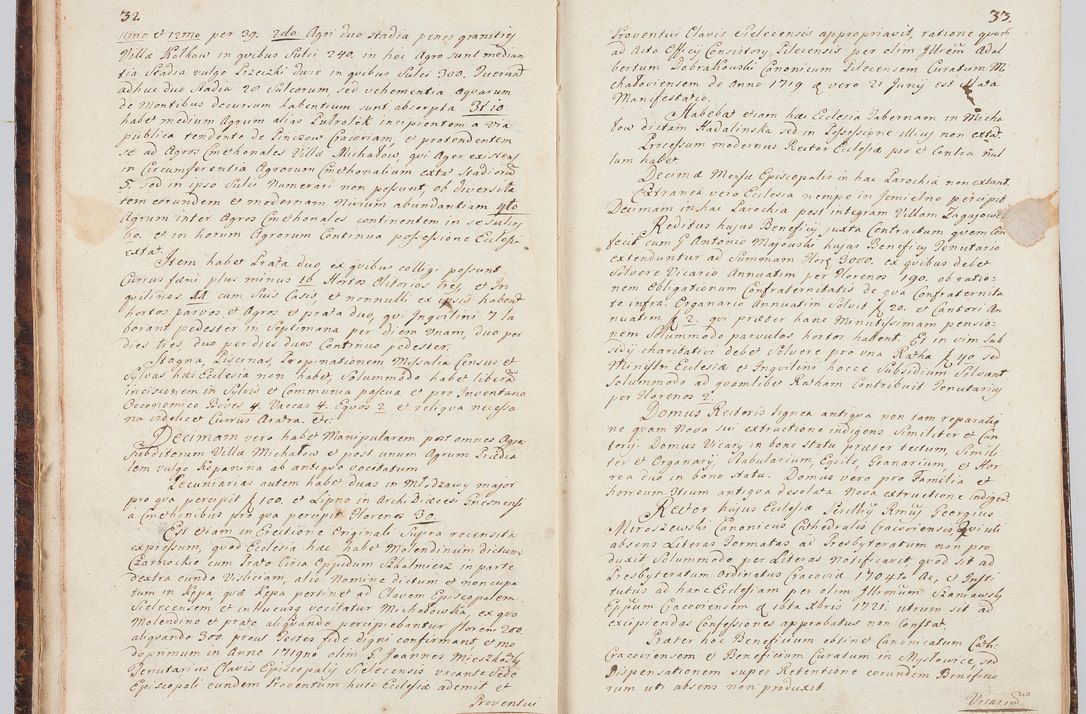 32.
umo et 12mo per 39. 2do Agri duo stadia penes granities
Villæ Kołkow in quibus Sulci 240. in hoc Agro sunt median
tia Stadia vulgo Przeczki dure in quibus Sulci 300. fuerunt
adhuc duo Stadia 20 Sulcorum, sed vehementia Aquarum
de Montibus decursum habentium sunt absorpta 3tio
habet medium Agrum alias Pułrolek incipientem a via
publica tendente de Pinczow Cracoviam, et protendentem
se ad Agros Cmethonales Villæ Michałow, qui Ager existens
in Circumferentia Agrorum Cmethonalium extat Stadiorum
5. Sed in ipso Sulci Numerari non possunt, ob diversita
tem eorundem et modernam Nivium abundantiam 4to
Agrum inter Agros Cmethonales continentem in se Sulcos
60. et in horum Agrorum Continua possessione Ecclesia
extat.
Item habet Prata duo ex quibus colligi possunt
Currus fæni plus minus 16 Hortos Olitorios tres, et In
quilinos 11 cum Suis Casis, et nonnulli ex ipsis habent
hortos parvos et Agros et prata duo, qui Inquilini 7 la
borant pedester in Septimana per diem Unam, duo per
dies tres, duo per dies duos Continuo pedester.
Stagna, Piscinas, Propinationem, Missalia Census et
Sylvas hæc Ecclesia non habet, Solummodo habet liberam
incisionem in Sylvis et Communia pascua et pro Inventario
Oeconomico Boves 4. Vaccas 4. Equos 2 et reliqua necessa
ria videlicet Currus Aratra. Etc:
Decimam vero habet Manipularem post omnes Agros
Subditorum Villæ Michałow et post unum Agrum Prædia
lem vulgo Kopanina ab antiquo vocitatum
Pecuniarias autem habet duas in Młodzawy major
pro qua percipit f 100. et Lipno in Archi Diæcesi Gnesnensi
à Cmethonibus pro qua percipit Florenos 30.
Est etiam in Erectione Originali Supra recensita
expressum, quod Ecclesia hæc habet Molendinum dictum
Czarnockie cum Prato Circa Oppidum Szkalmierz in parte
dextra eundo Visliciam, alio Nomine dictum et noncupa
tum in Kępa quæ Kępa pertinet ad Clavem Episcopalem
Sielecensem et inhucusq vocitatur Michałowska ex quo
Molendino et prato aliquando percipiebantur Floreni 200.
aliquando 300. prout Testes fide digni confirmant, et mo
do unum in Anno 1719no olim G Joannes Mieszkowski
Tenutarius Clavis Episcopalis Sielecensis vacante Sede
Episcopali eundem Proventum huic Ecclesiæ ademit et
Proventui
33.
Proventui Clavis Sielecensis appropriavit, ratione quorum
ad Acta Officij Consistorij Pilecensis per olim Illrem Adal
bertum Dobrakowski Canonicum Pilecensem Curatum Mi
chałoviensem de Anno 1719 q vero 21 Junij est facta
Manifestatio.
Habebat etiam hæc Ecclesia Tabernam in Micha
łow dictam Hadalinska sed in possessione illius non extat
Processum modernus Rector Ecclesiæ pro et Contra nul
lum habet
Decimæ Mensæ Episcopalis in hac Parochia non extant.
Extranea vero Ecclesia nempe in Jemielno percipit
Decimam in hac Parochia post integram Villam Zagajow
Reditus hujus Beneficij juxta Contractum quem Con
fecit cum G Antonio Majowski hujus Beneficij Tenutario
extenduntur ad Summam Flor: 3000. ex quibus debet
Solvere Vicario Annuatim per Florenos 190. ob ratio=
nem Obligationum Confraternitatis de qua Confraternita
te infra. Organario Annuatim Solvit f 20. et Cantori An
nuatim f 2. qui præter hanc Minutissimam pensio=
nem Solummodo parvulos hortos habent. Et in vim Sub
sidij charitativi debet Solvere pro una Ratha f 40 sed
Ministri Ecclesiæ et Inquilini hocce Subsidium Solvunt
Solummodo ad quamlibet Ratham Contribuit Tenutarius
per Florenos 2
Domus Rectoris lignea antiqua non tam reparatio
ne quam Nova sui extructione indigens Similiter et Can
toris. Domus Vicarij in bono Statu præter tectum, Simili
ter et Organarij, Stabularium, Equile, Granarium, et Hor
rea duo in bono Statu. Domus vero pro Familia et
horreum 3tium antiqua desolata Nova extructione indigent
Rector hujus Ecclesiæ Perillris Rmus Georgius
Mireszewski Canonicus Cathedralis Cracoviensis, qui uti
absens Literas Formatas ad Presbyteratum non pro
duxit, Solummodo per Literas Notificavit quod sit ad
Presbyteratum Ordinatus Cracoviæ 1704to Ao, et Insti
tutus ad hanc Ecclesiam per olim Illrmum Szaniawski
Eppum Cracoviensem q 10ta Xbris 1721. utrum sit ad
excipiendas Confessiones approbatus non Constat
Præter hoc Beneficium obtinet Canonicatum Cath.
Cracoviensem et Beneficium Curatum in Mysłowice, sed
Dispensationem super Retentione eorundem Beneficio
rum uti absens non produxit.
Vicarius